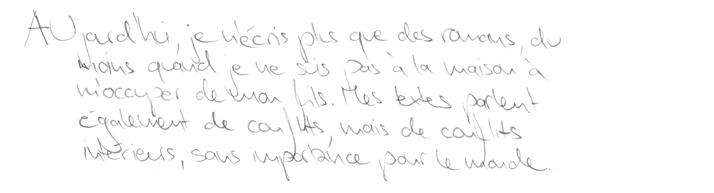 AUjourd'hui, je n'écris plus que des romans, du
moins quand je ne suis pas à la maison à
m'occuper de mon fils. Mes textes parlent
également de conflits, mais de conflits
intérieurs, sans importance pour le monde.